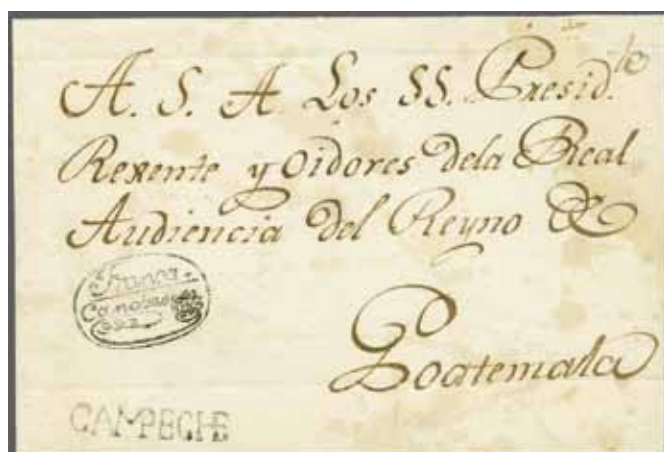 A. S. A Los SS. Presid.te
Rexente y Oidores dela Real
Audiencia del Reyno &
Franca
Goatemala
CAMPECHE